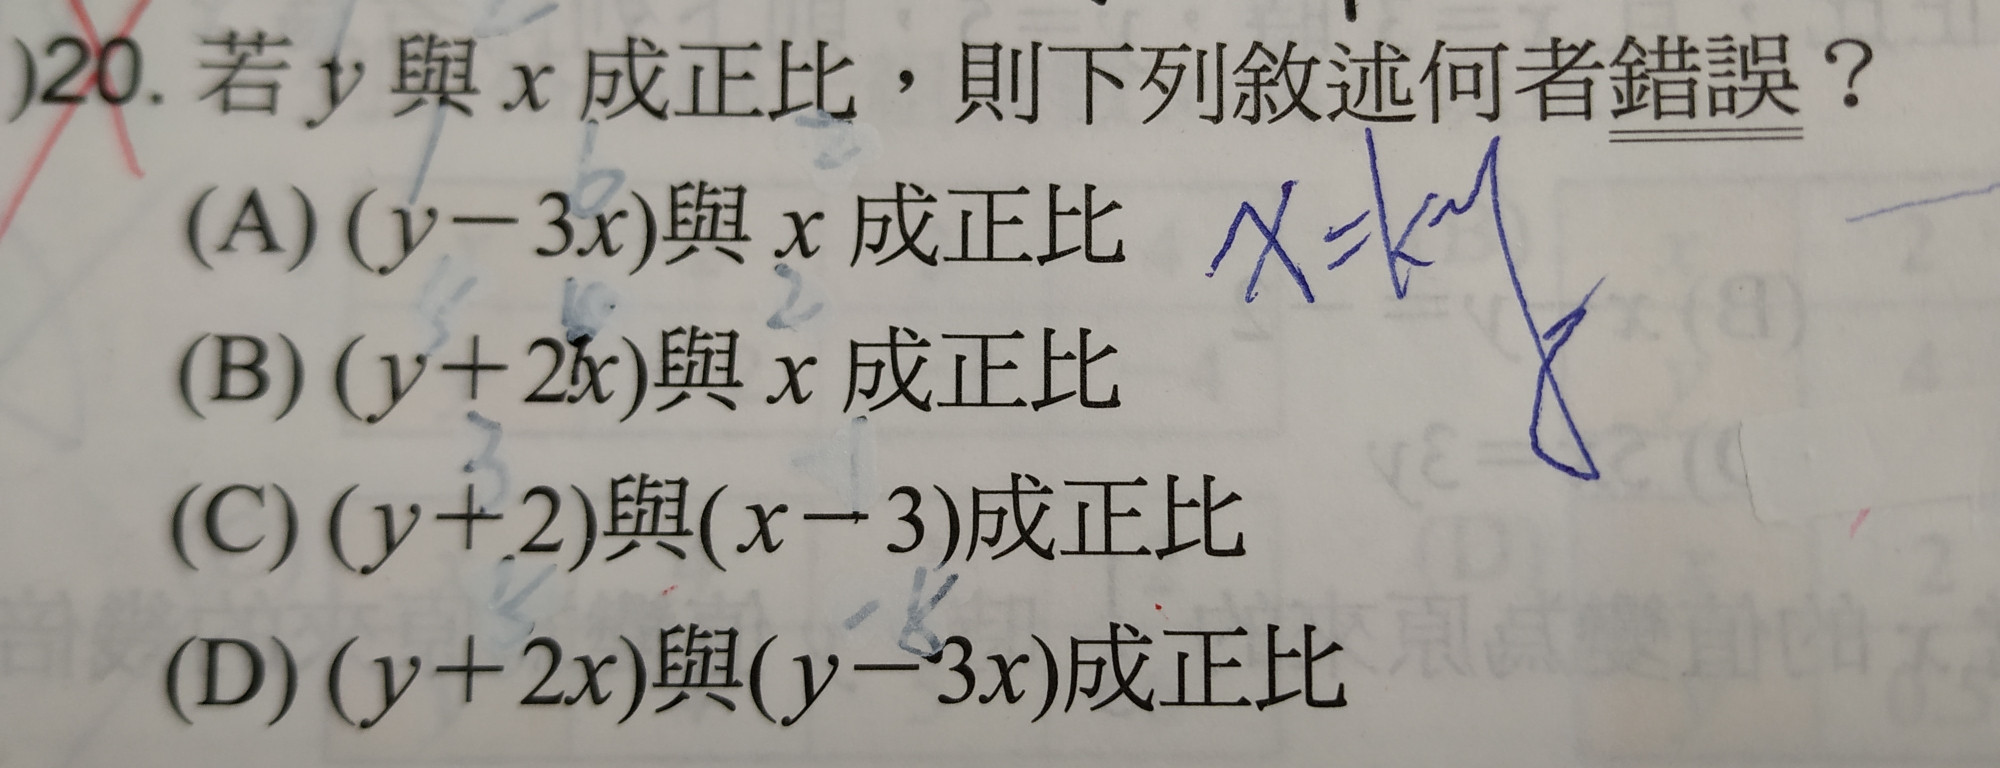 )20. 若 y 與 x 成正比，則下列敘述何者錯誤？
(A) (y－3x)與 x 成正比
x=ky
(B) (y＋2x)與 x 成正比
(C) (y＋2)與(x－3)成正比
(D) (y＋2x)與(y－3x)成正比